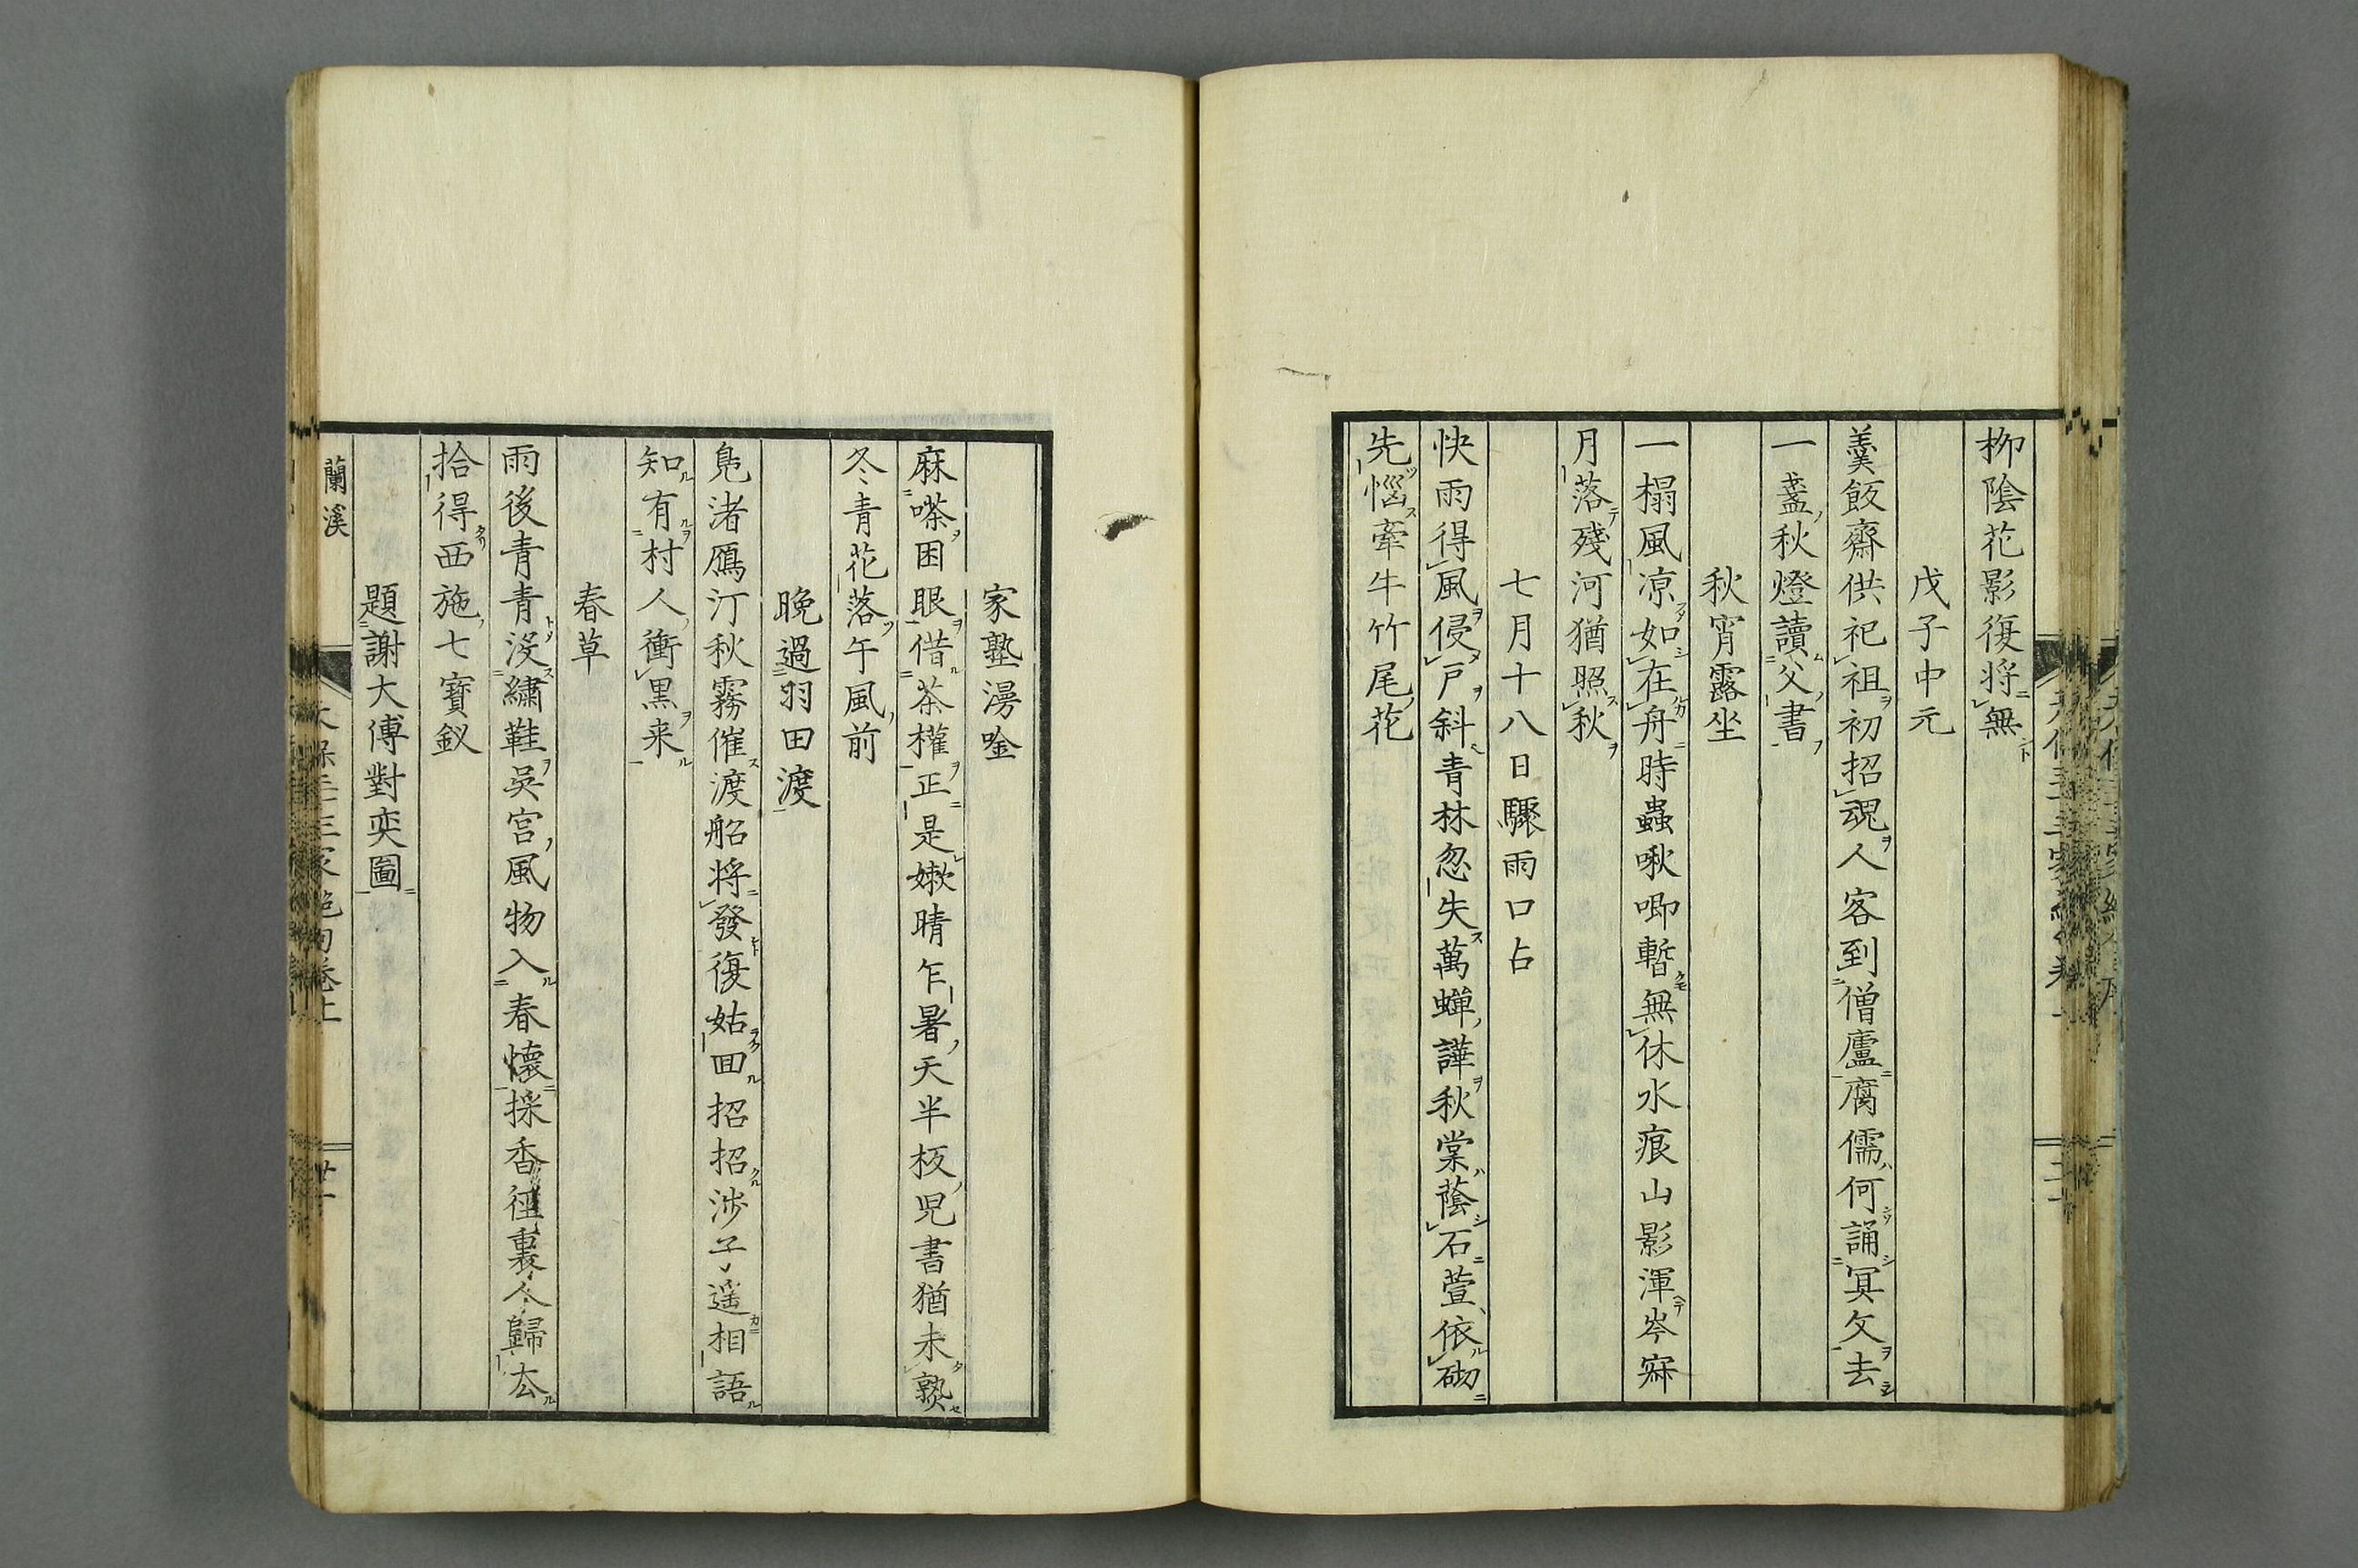 柳陰花影復将無
戊子中元
羹飯齋供祀祖初招魂人客到僧廬腐儒何誦冥文去
一盞秋燈讀父書
秋宵露坐
一榻風凉如在舟時蟲啾喞暫無休水痕山影渾岑寂
月落殘河猶照秋
七月十八日驟雨口占
快雨得風侵戸斜青林忽失萬蟬譁秋棠蔭石萱依砌
先惱牽牛竹尾花
家塾漫唫
麻嗏困眼借茶權正是嫩晴乍暑天半板児書猶未熟
冬青花落午風前
晩過羽田渡
鳧渚鴈汀秋霧催渡船将發復姑回招招渉子遥相語
知有村人衝黒来
春草
雨後青青没繍鞋呉宮風物入春懐採香徑裏人歸去
拾得西施七寳釵
題謝大傅對奕圖
蘭溪